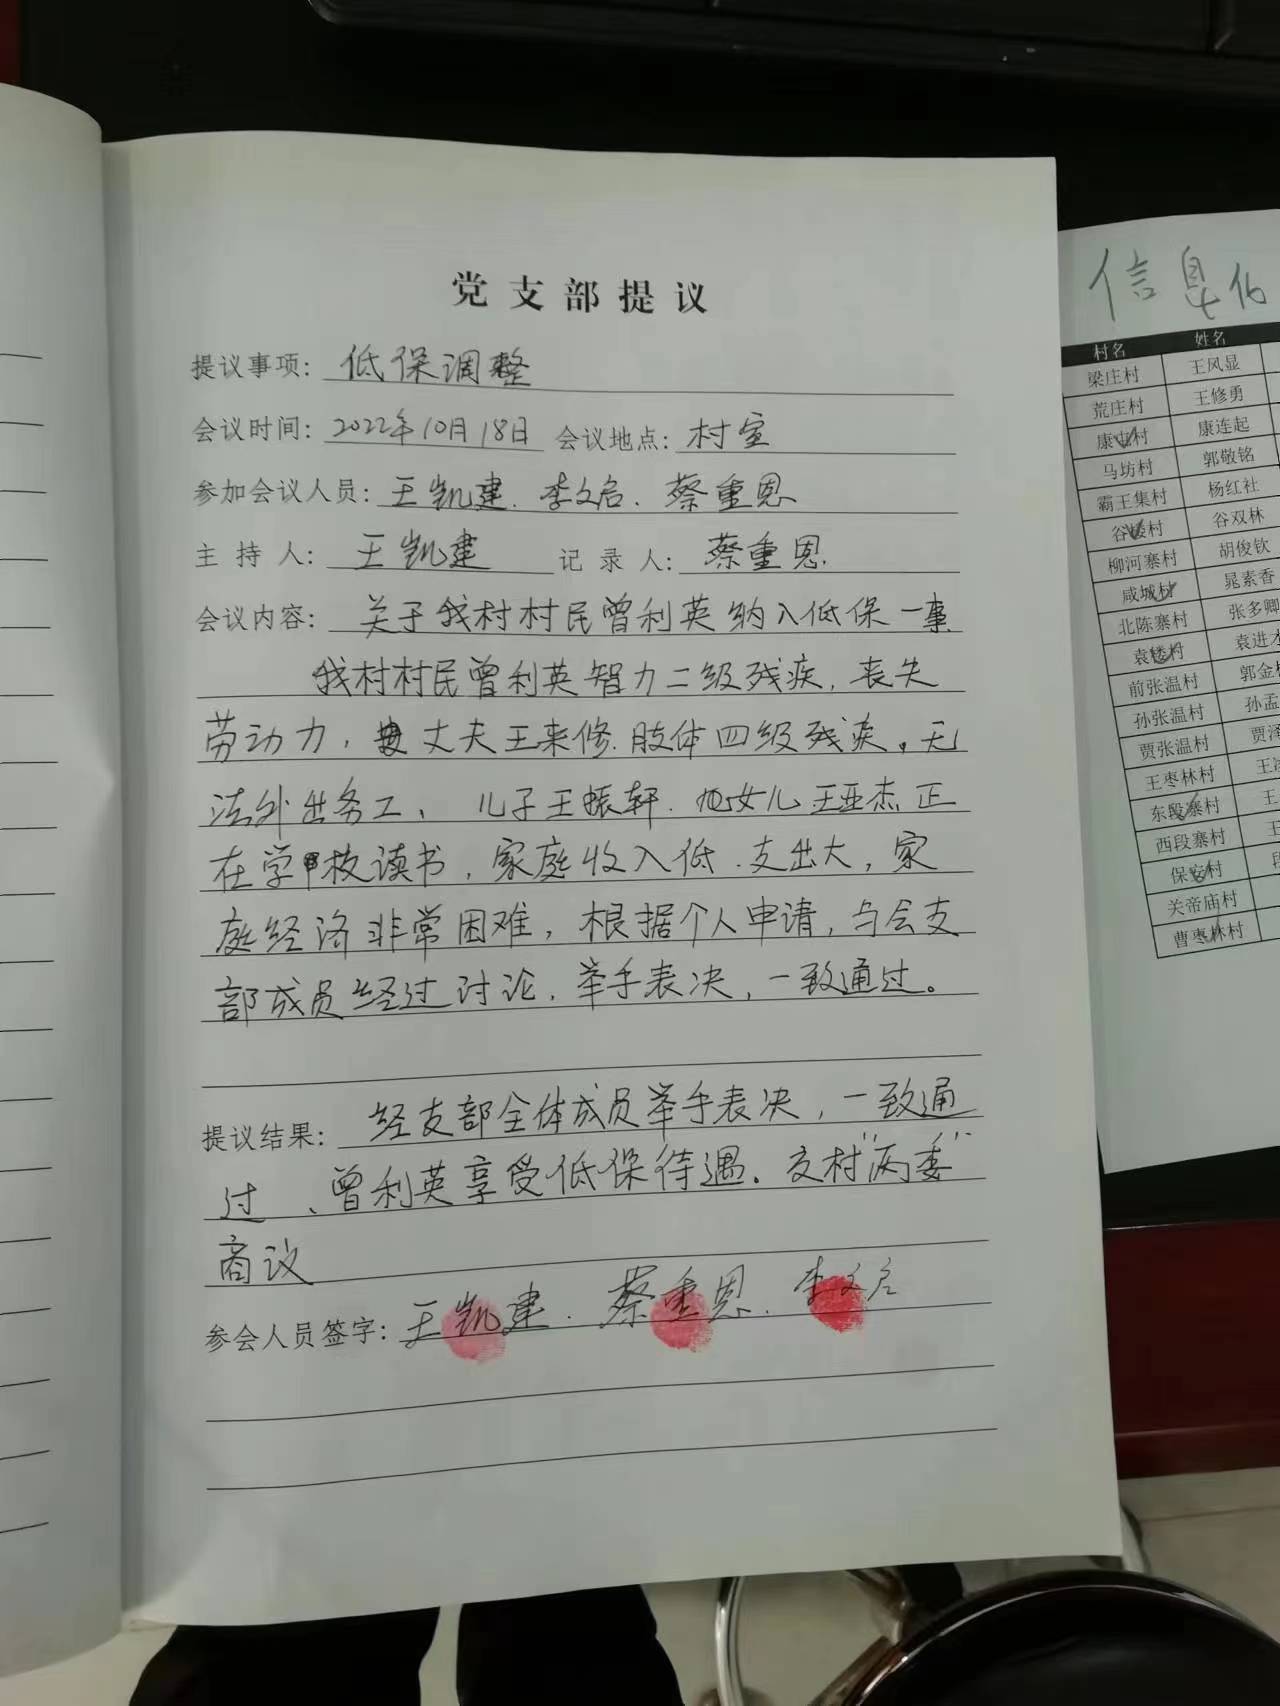 党支部提议
提议事项：低保调整
会议时间：2022年10月18日 会议地点：村室
参加会议人员：王凯建.李文启.蔡重恩
主持人：王凯建 记录人：蔡重恩
会议内容：关于我村村民曾利英纳入低保一事
我村村民曾利英智力二级残疾，丧失
劳动力，丈夫王来修.肢体四级残疾，无
法外出务工、儿子王振轩.女儿王亚杰正
在学校读书，家庭收入低.支出大，家
庭经济非常困难，根据个人申请，与会支
部成员经过讨论，举手表决，一致通过。
提议结果：经支部全体成员举手表决，一致通
过、曾利英享受低保待遇。交村“两委”
商议
参会人员签字：王凯建.蔡重恩.李文启
信息
村名 姓名
梁庄村 王风显
荒庄村 王修勇
康屯村 康连起
马坊村 郭敬铭
霸王集村 杨红社
谷楼村 谷双林
柳河寨村 胡俊钦
咸城村 晁素香
北陈寨村 张多卿
袁楼村 袁进才
前张温村 郭金
孙张温村 孙孟
贾张温村 贾泽
王枣林村 王
东段寨村 王
西段寨村 王
保安村 段
关帝庙村
曹枣林村